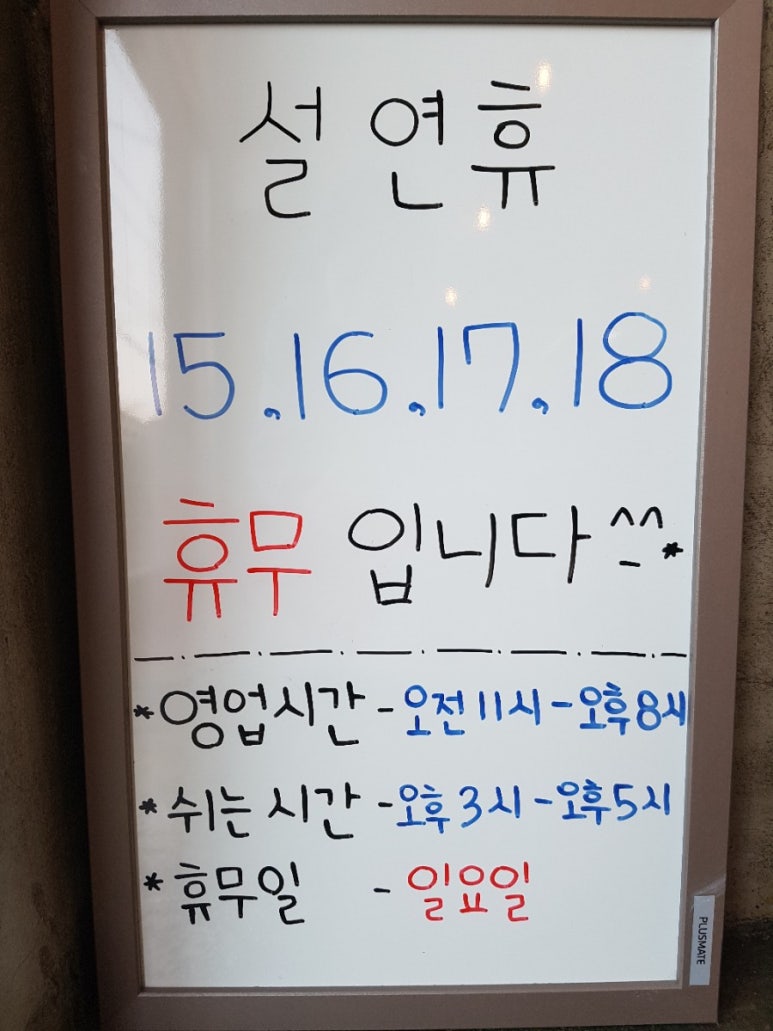 설 연휴
15.16.17.18
휴무 입니다 ^^*
* 영업시간 - 오전 11시 - 오후 8시
* 쉬는 시간 - 오후 3시 - 오후 5시
* 휴무일 - 일요일
PLUSMATE